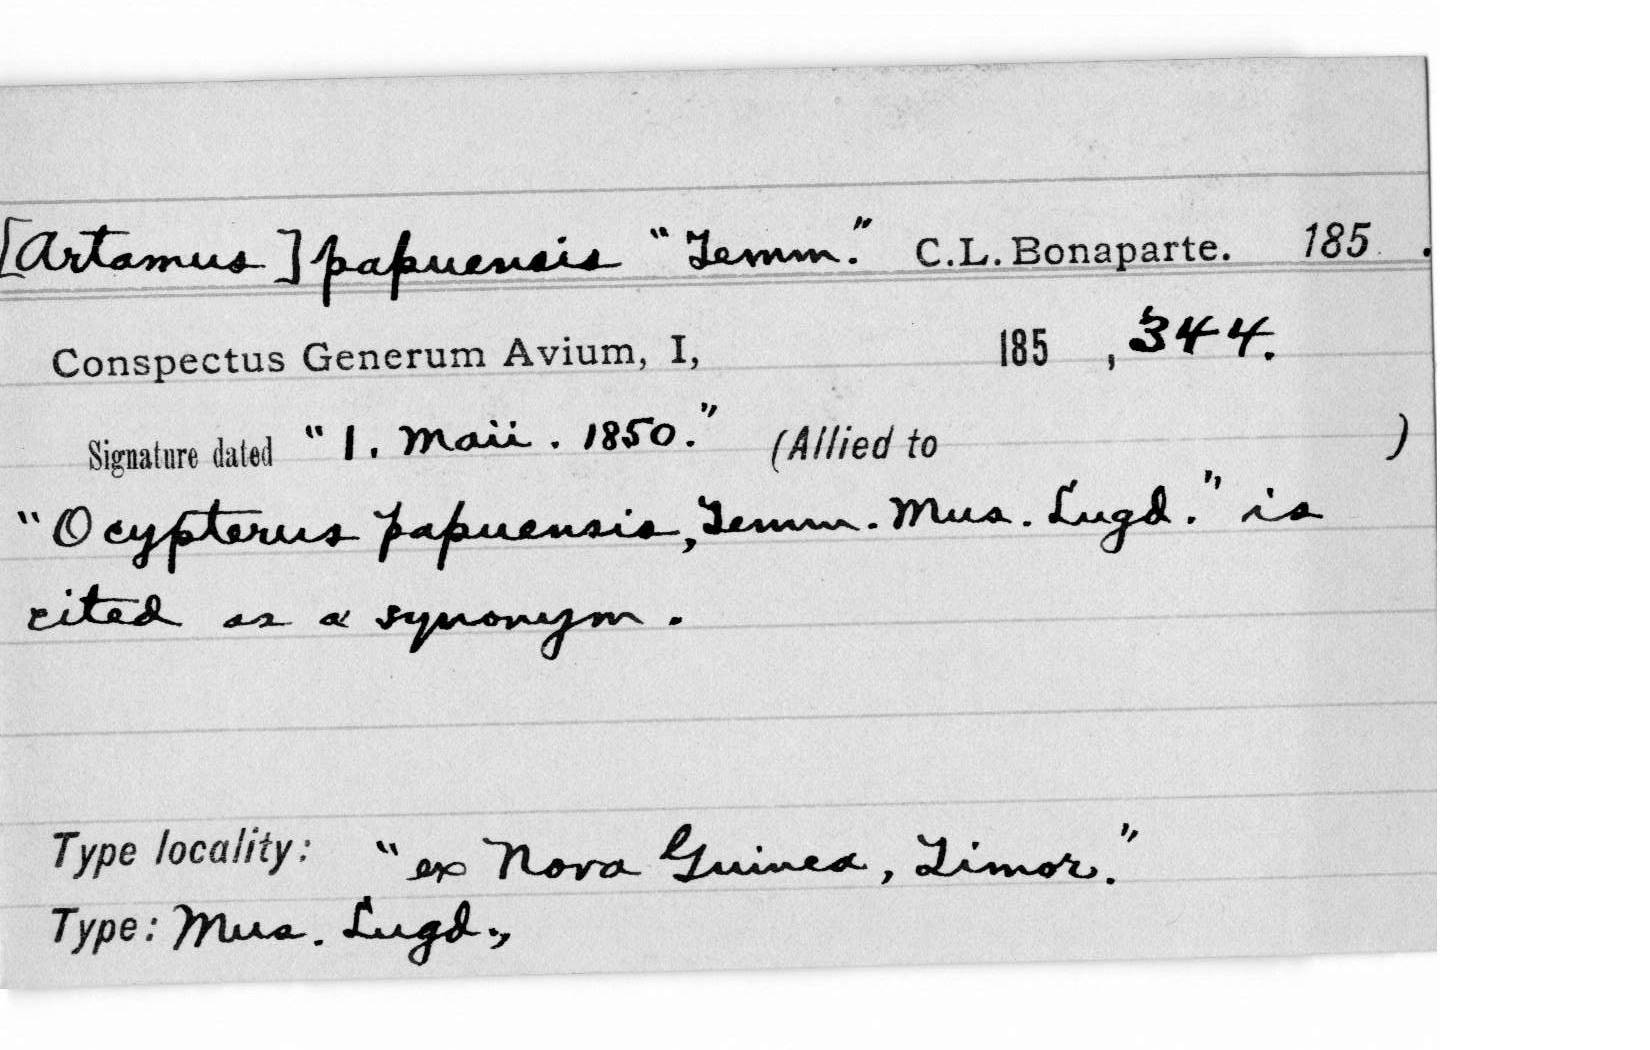 [Artamus] papuensis "Temm." C.L. Bonaparte. 185 .
Conspectus Generum Avium, I, 185 , 344.
Signature dated "1. Maii. 1850." (Allied to )
"Ocypterus papuensis, Temm. Mus. Lugd." is
cited as a synonym.
Type locality: "ex Nova Guinea, Timor."
Type: Mus. Lugd.,